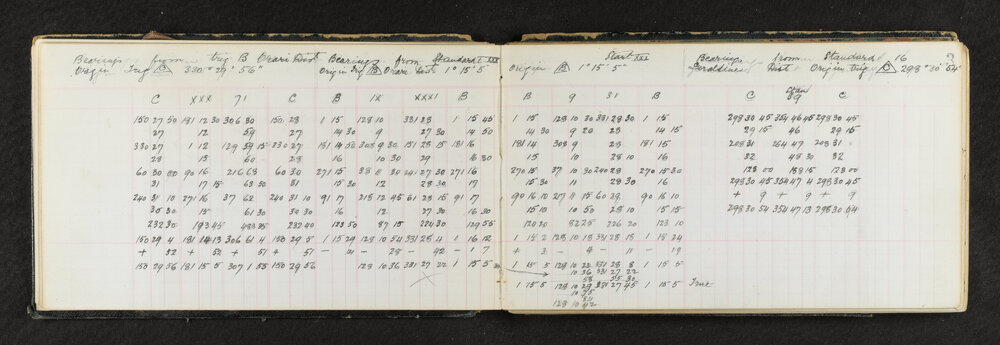 Bearings from trig B Orari Dist
Origin Trig C 330° 29' 56"
C XXX 71 C
150 27 50 181 12 30 306 30 150 28
27 12 59 27
330 27 1 12 129 59 15 330 27
28 13 60 28
60 30 00 90 16 216 63 60 30
31 17 15 63 30 31
240 31 10 271 16 37 62 240 31 10
150 29 56 181 15 5 307 1 55 150 29 56
Bearings from Standard XXX
Origin trig B Orari Dist 1° 15' 5
B IX XXXI B
1 15 128 10 331 28 1 15 45
14 30 9 27 30 14 50
181 14 50 308 9 30 151 28 15 181 16
16 10 30 29 16 30
271 15 38 11 30 241 27 30 271 16
15 30 12 28 30 17
91 17 218 12 45 61 28 15 91 17
16 12 27 30 16 30
123 50 87 15 224 30 129 55
1 15 29 128 10 54 331 28 4 1 16 12
128 10 36 331 27 22 1 15 5
Start XXX
Origin B 1° 15' 5"
B 9 31 B
1 15 128 10 30 331 28 30 1 15
14 30 9 20 28 14 15
181 14 308 9 151 23 181 15
15 10 28 10 16
270 15 37 10 30 240 28 270 15 30
15 30 11 28 30 16
90 16 10 217 11 15 60 29 90 16 10
15 10 10 50 28 10 15 15
120 20 82 25 226 20 123 10
1 15 2 128 10 18 331 28 18 1 15 24
+ 3 - 4 - 11 - 19
1 15 5 128 10 22 331 28 8 1 15 5
10 36 331 27 22
1 15 5 128 10 29 331 27 45 1 15 5 True
128 10 42
Bearings from Standard 16
Geraldine Dist Origin trig C 298° 30' 54"
C Stan 39 C
298 30 45 354 46 45 298 30 45
29 15 46 29 15
208 31 264 47 208 31
32 48 30 32
123 00 188 15 123 00
298 30 45 354 47 4 298 30 45
+ 9 + 9 + 9
298 30 54 354 47 13 298 30 54